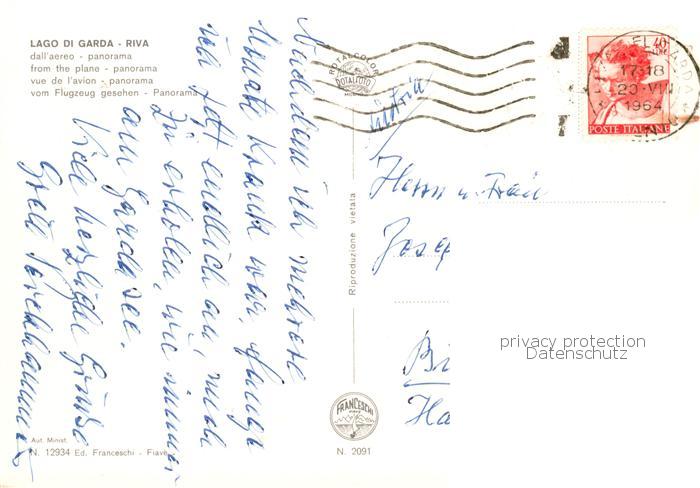 LAGO DI GARDA - RIVA
dall'aereo - panorama
from the plane - panorama
vue de l'avion - panorama
vom Flugzeug gesehen - Panorama
Nachdem ich mehrere
Monate krank war, fange
ich jetzt endlich an, mich
zu erholen, wie immer
am Gardasee.
Viele herzliche Grüße
Aut. Minist.
N. 12934 Ed. Franceschi - Fiave
Riproduzione vietata
ROTALCOLOR
ROTALFOTO
FRANCESCHI
N. 2091
17-18
20-VIII
1964
POSTE ITALIANE
Herrn u. Frau
Josef
Bi
Ha
privacy protection
Datenschutz